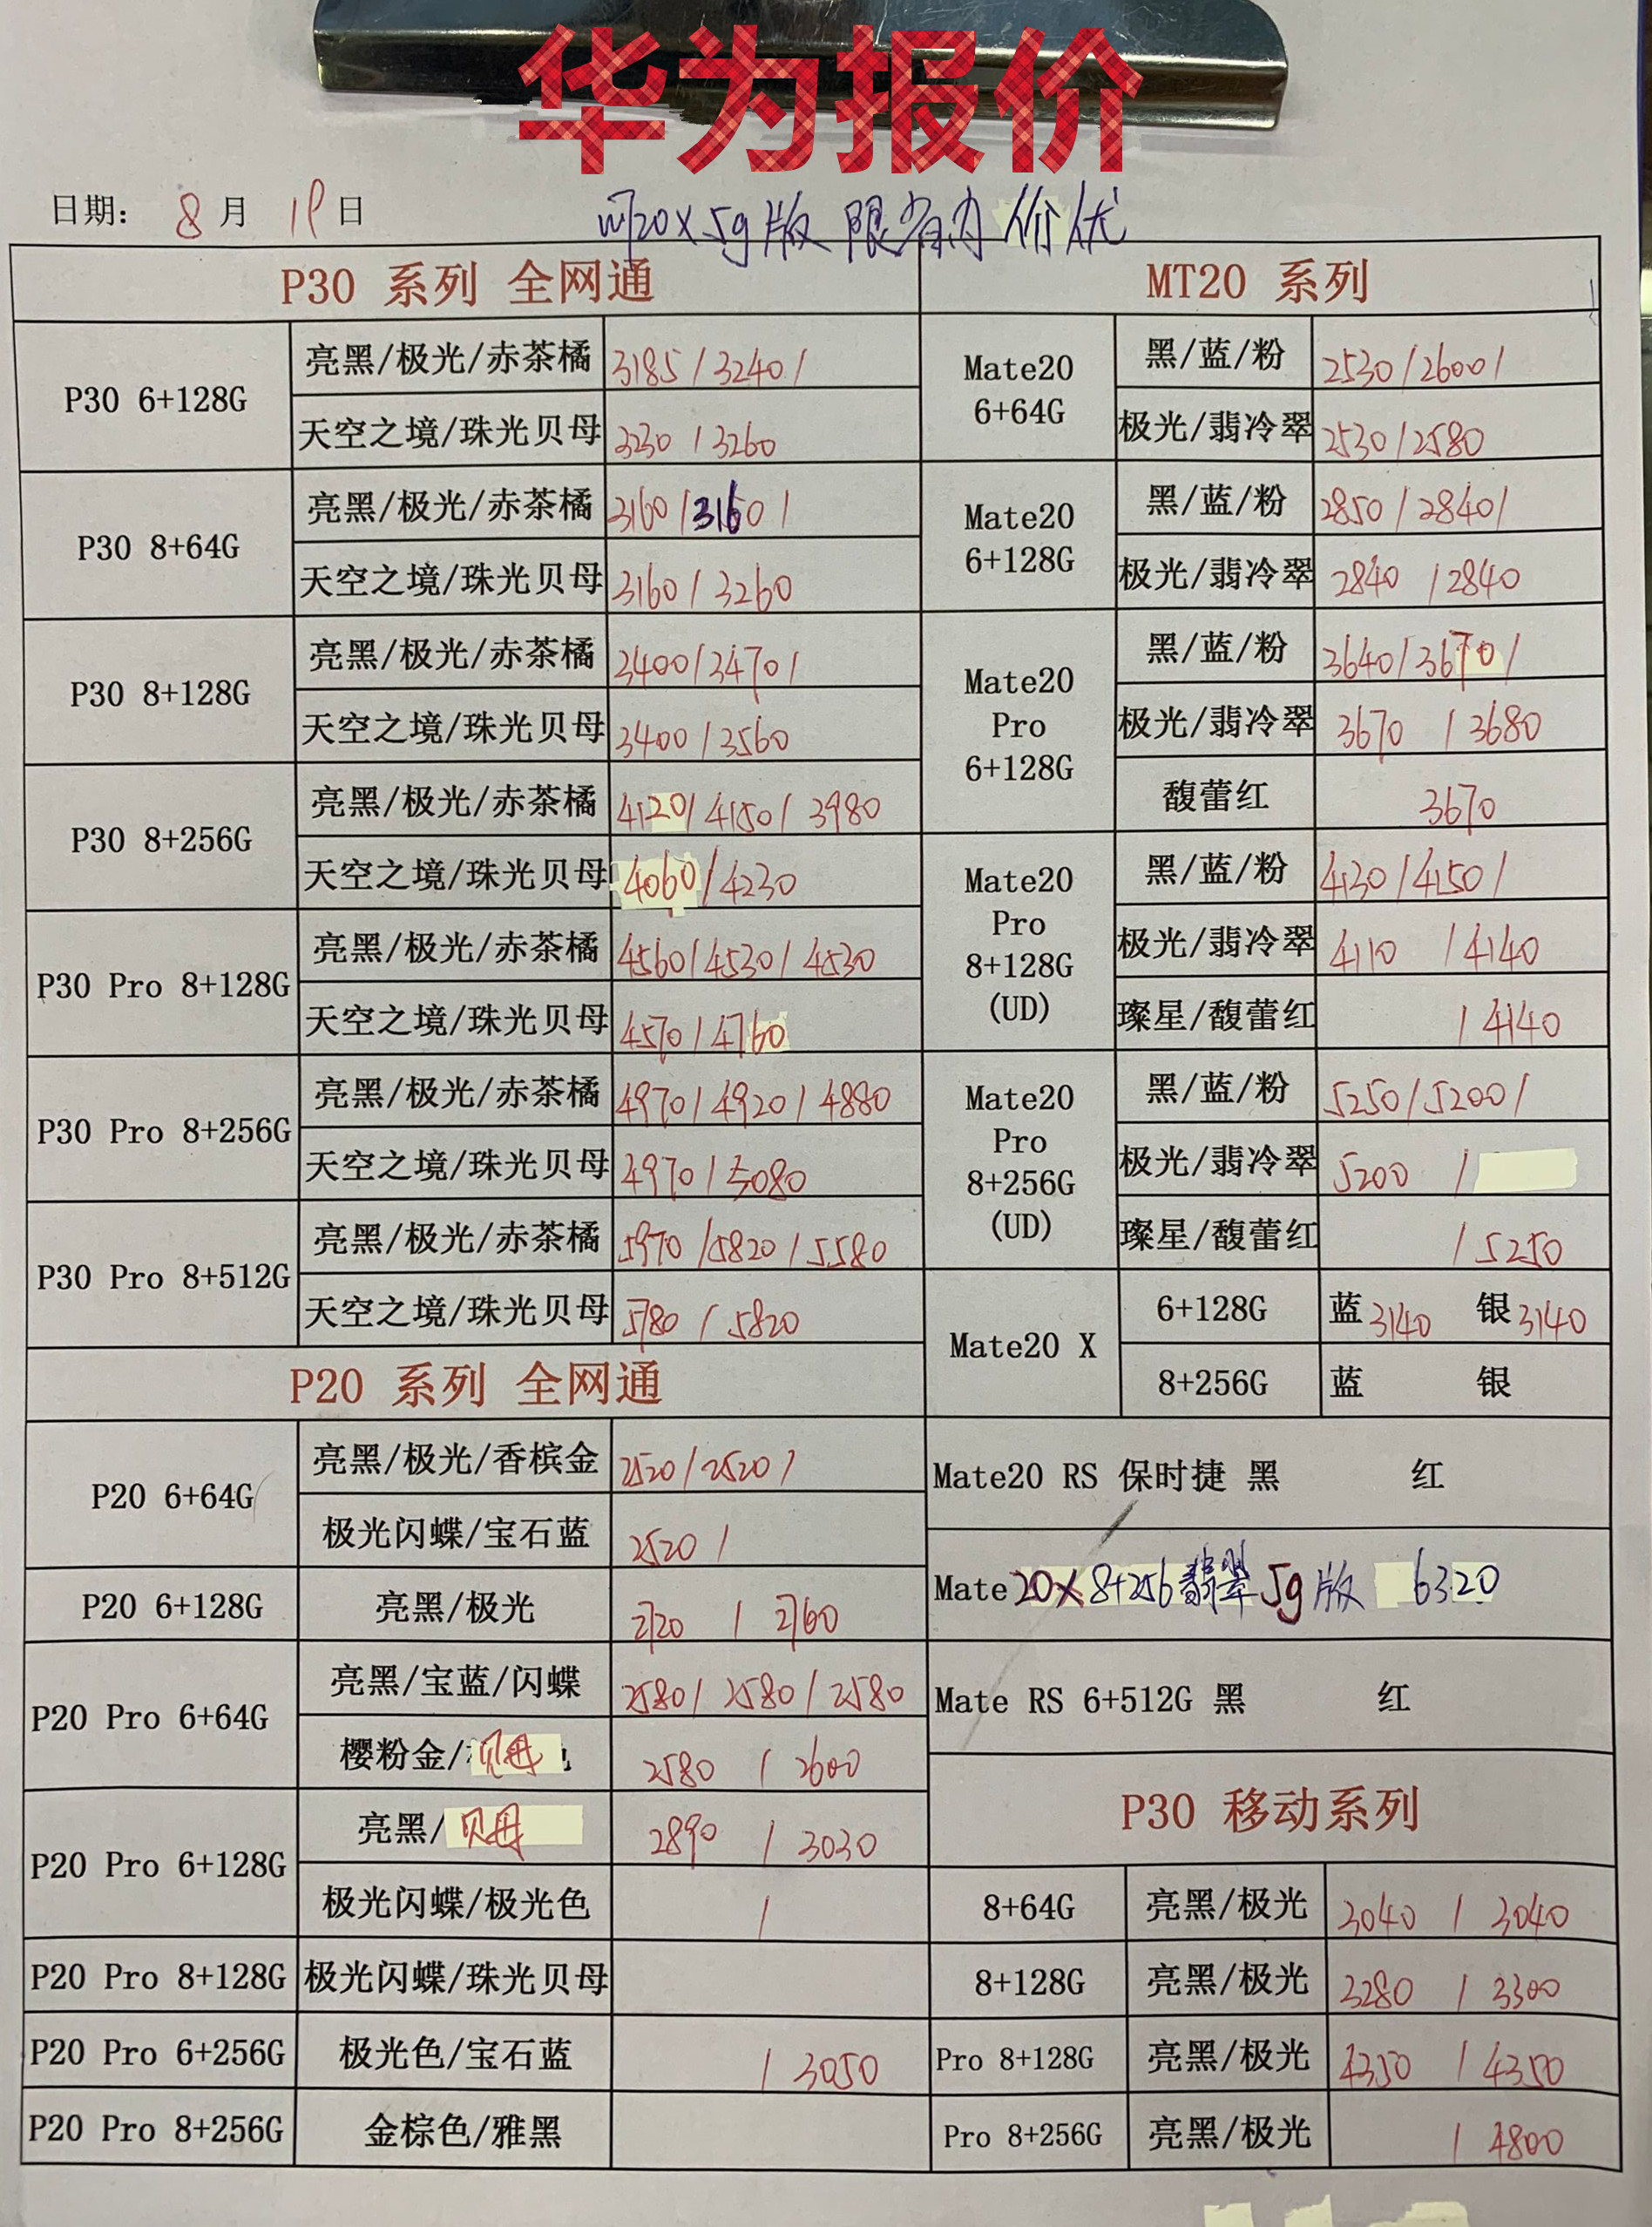 华为报价
日期： 8 月 19 日
m20x 5g版 限省内 价优
P30 系列 全网通
P30 6+128G
亮黑/极光/赤茶橘 3185/3240/
天空之境/珠光贝母 3230/3260
P30 8+64G
亮黑/极光/赤茶橘 3160/3160/
天空之境/珠光贝母 3160/3260
P30 8+128G
亮黑/极光/赤茶橘 3400/3470/
天空之境/珠光贝母 3400/3560
P30 8+256G
亮黑/极光/赤茶橘 4120/4150/3980
天空之境/珠光贝母 4060/4230
P30 Pro 8+128G
亮黑/极光/赤茶橘 4560/4530/4530
天空之境/珠光贝母 4570/4760
P30 Pro 8+256G
亮黑/极光/赤茶橘 4970/4920/4880
天空之境/珠光贝母 4970/5080
P30 Pro 8+512G
亮黑/极光/赤茶橘 5970/5820/5580
天空之境/珠光贝母 5780/5820
P20 系列 全网通
P20 6+64G
亮黑/极光/香槟金 2520/2520/
极光闪蝶/宝石蓝 2520/
P20 6+128G
亮黑/极光 2720/2760
P20 Pro 6+64G
亮黑/宝蓝/闪蝶 2580/2580/2580
樱粉金/贝母 2580/2600
P20 Pro 6+128G
亮黑/贝母 2890/3030
极光闪蝶/极光色 /
P20 Pro 8+128G
极光闪蝶/珠光贝母
P20 Pro 6+256G
极光色/宝石蓝 /3050
P20 Pro 8+256G
金棕色/雅黑
MT20 系列
Mate20
6+64G
黑/蓝/粉 2530/2600/
极光/翡冷翠 2530/2580
Mate20
6+128G
黑/蓝/粉 2850/2840/
极光/翡冷翠 2840/2840
Mate20
Pro
6+128G
黑/蓝/粉 3640/3670/
极光/翡冷翠 3670/3680
馥蕾红 3670
Mate20
Pro
8+128G
(UD)
黑/蓝/粉 4130/4150/
极光/翡冷翠 4110/4140
璨星/馥蕾红 /4140
Mate20
Pro
8+256G
(UD)
黑/蓝/粉 5250/5200/
极光/翡冷翠 5200/
璨星/馥蕾红 /5250
Mate20 X
6+128G 蓝3140 银3140
8+256G 蓝 银
Mate20 RS 保时捷 黑 红
Mate 20X 8+256 翡翠 5g版 6320
Mate RS 6+512G 黑 红
P30 移动系列
8+64G 亮黑/极光 3040/3040
8+128G 亮黑/极光 3280/3300
Pro 8+128G 亮黑/极光 4350/4350
Pro 8+256G 亮黑/极光 /4800